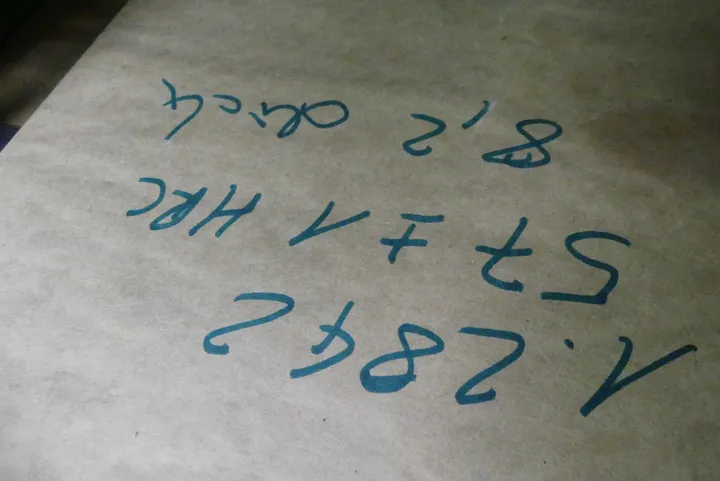 1.2842
57 ± 1 HRC
8,2